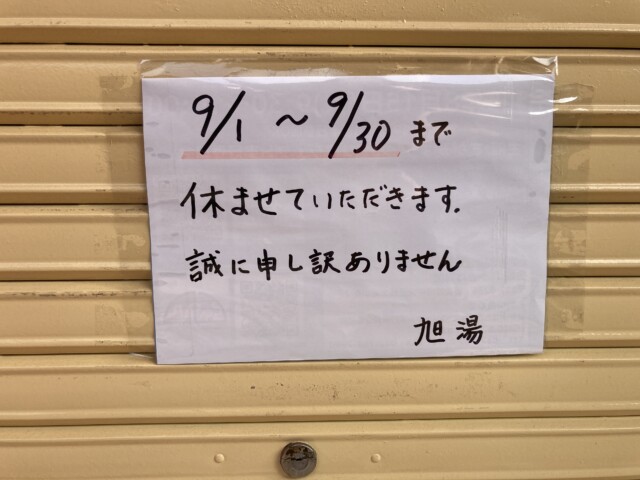 9/1 ～ 9/30 まで
休ませていただきます.
誠に申し訳ありません
旭湯